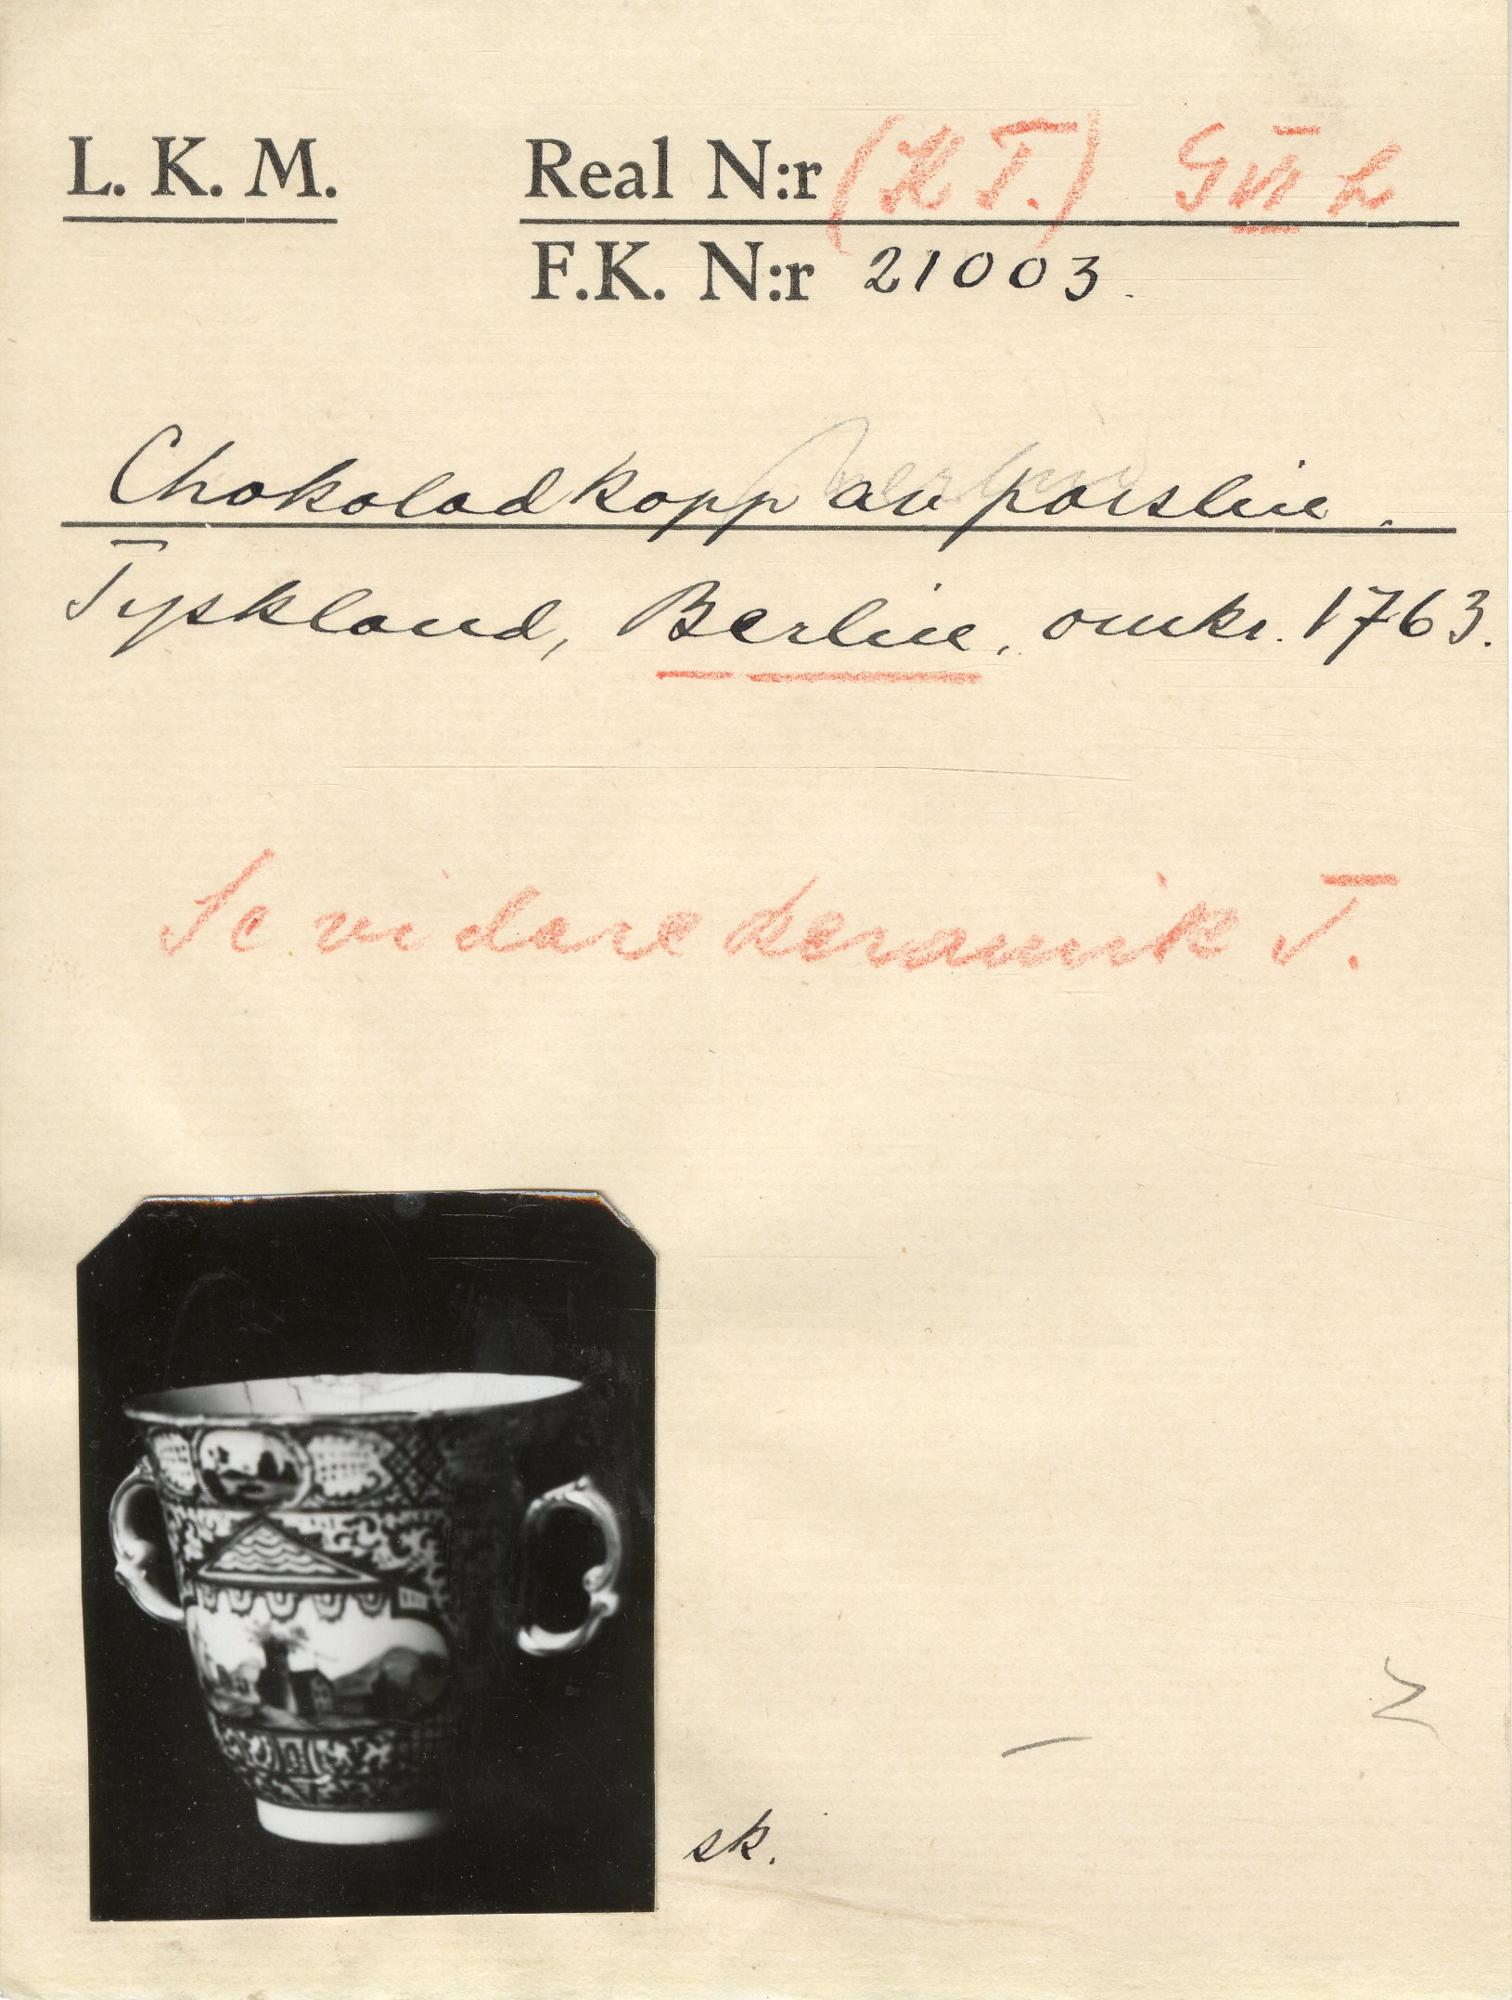 L. K. M.
Real N:r (K T.) G VI h
F.K. N:r 21003.
Chokoladkopp av porslin.
Tyskland, Berlin, omkr. 1763.
Se vidare keramik T.
sk.